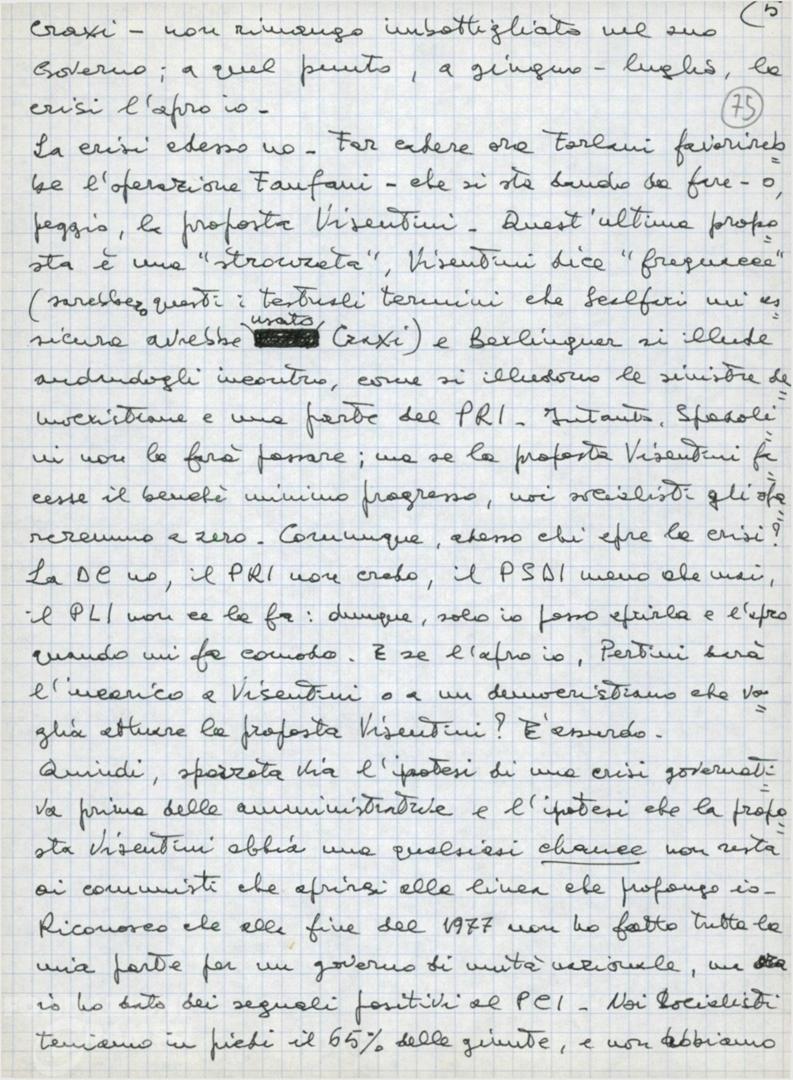 (5
Craxi - non rimango imbottigliato nel suo
Governo; a quel punto, a giugno - luglio, la
crisi l'apro io -
75
La crisi adesso no - Far cadere ora Forlani favorireb
be l'operazione Fanfani - che si sta dando da fare - o,
peggio, la proposta Visentini - Quest'ultima propo
sta è una "stronzata", Visentini dice "fregnacce"
(sarebbero questi i testuali termini che Scalfari mi as
sicura avrebbe usato Craxi) e Berlinguer si illude
andandogli incontro, come si illudono le sinistre de
mocristiane e una parte del PRI - Intanto, Spadoli
ni non la farà passare; ma se la proposta Visentini fa
cesse il benché minimo progresso, noi socialisti gli spa
reremmo a zero - Comunque, adesso chi apre la crisi?
La DC no, il PRI non credo, il PSDI meno che mai,
il PLI non ce la fa: dunque, solo io posso aprirla e l'apro
quando mi fa comodo. E se l'apro io, Pertini darà
l'incarico a Visentini o a un democristiano che vo
glia attuare la proposta Visentini? E' assurdo -
Quindi, spazzata via l'ipotesi di una crisi governati
va prima delle amministrative e l'ipotesi che la propo
sta Visentini abbia una qualsiasi chance non resta
ai comunisti che aprirsi alla linea che propongo io -
Riconosco che alla fine del 1977 non ho fatto tutta la
mia parte per un governo di unità nazionale, ma ora
io ho dato dei segnali positivi al PCI - Noi Socialisti
teniamo in piedi il 65% delle giunte, e non abbiamo